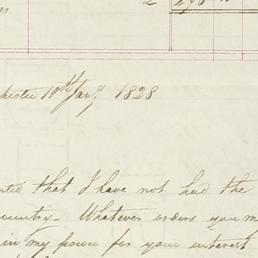 chester 10th Jany. 1828
that I have not had the
country - Whatever orders you m
in my power for your interest